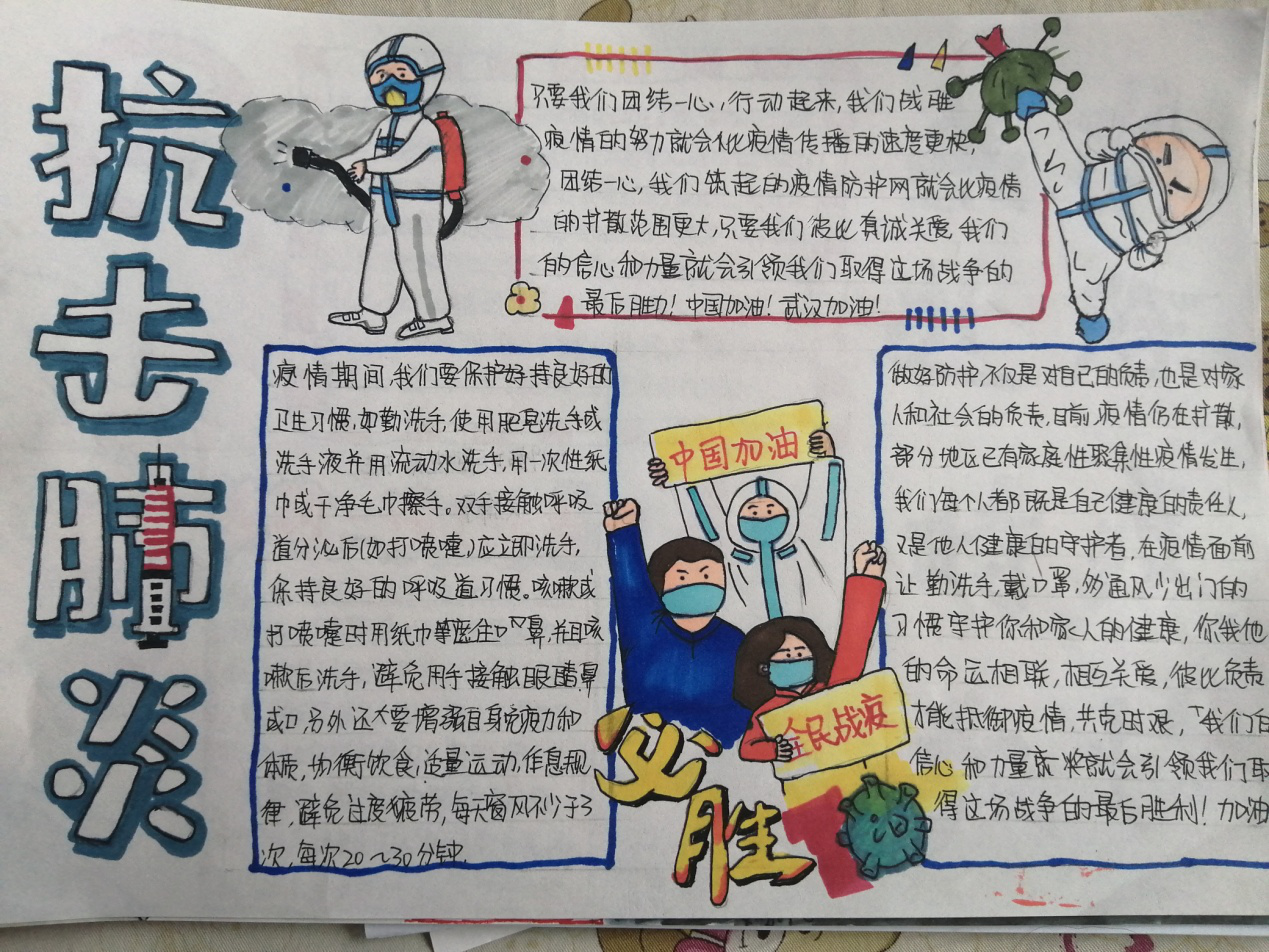 抗击肺炎
只要我们团结一心,行动起来,我们战胜
疫情的努力就会比疫情传播的速度更快,
团结一心,我们筑起的疫情防护网就会比疫情
的扩散范围更大,只要我们彼此真诚关爱,我们
的信心和力量就会引领我们取得这场战争的
最后胜力!中国加油!武汉加油!
疫情期间,我们要保护好持良好的
卫生习惯,如勤洗手,使用肥皂洗手或
洗手液并用流动水洗手,用一次性纸
巾或干净毛巾擦手。双手接触呼吸
道分泌后(如打喷嚏)应立即洗手,
保持良好的呼吸道习惯。咳嗽或
打喷嚏时用纸巾等遮住口鼻,并且咳
嗽后洗手,避免用手接触眼睛鼻
或口另外还大要增强自身免疫力和
体质,均衡饮食,适量运动,作息规
律,避免过度疲劳,每天窗风不少于3
次,每次20~30分钟.
中国加油
全民战疫
必胜
做好防护,不仅是对自己的负责,也是对家
人和社会的负责,目前,疫情仍在扩散,
部分地区已有家庭性聚集性疫情发生,
我们每个人都既是自己健康的责任人,
又是他人健康的守护者,在疫情面前
让勤洗手,戴口罩,多通风少出门的
习惯守护你和家人的健康,你我他
的命运相联,相互关爱,彼此负责
才能抵御疫情,共克时艰,「我们自
信心和力量就会引领我们取
得这场战争的最后胜利!加油